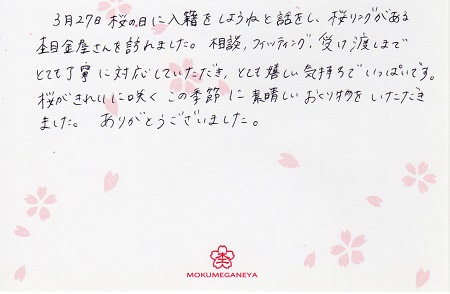 3月27日 桜の日に入籍をしようねと話をし、桜リングがある
杢目金屋さんを訪れました。相談、フィッティング、受け渡しまで
とても丁寧に対応していただき、とても嬉しい気持ちでいっぱいです。
桜がきれいに咲く この季節に素晴しいおくり物をいただき
ました。 ありがとうございました。
杢
MOKUMEGANEYA